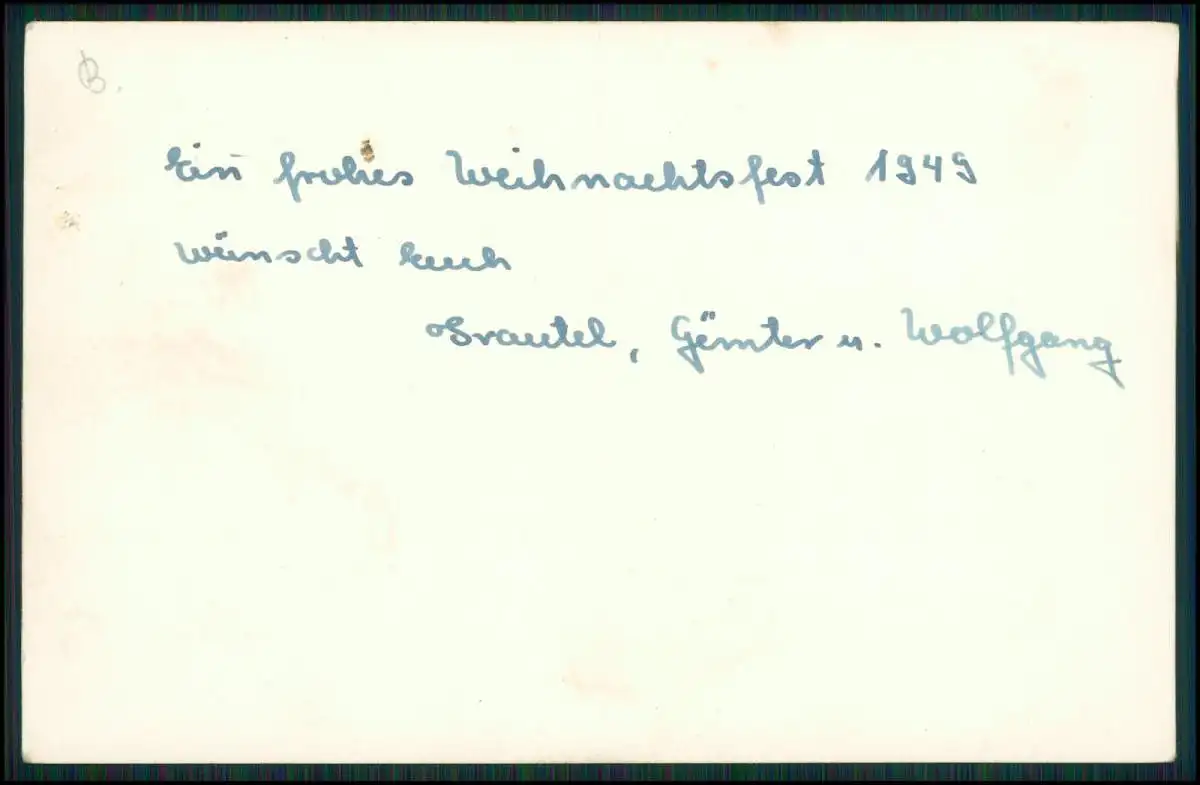 B.
Ein frohes Weihnachtsfest 1949
wünscht Euch
Trautel, Günter u. Wolfgang